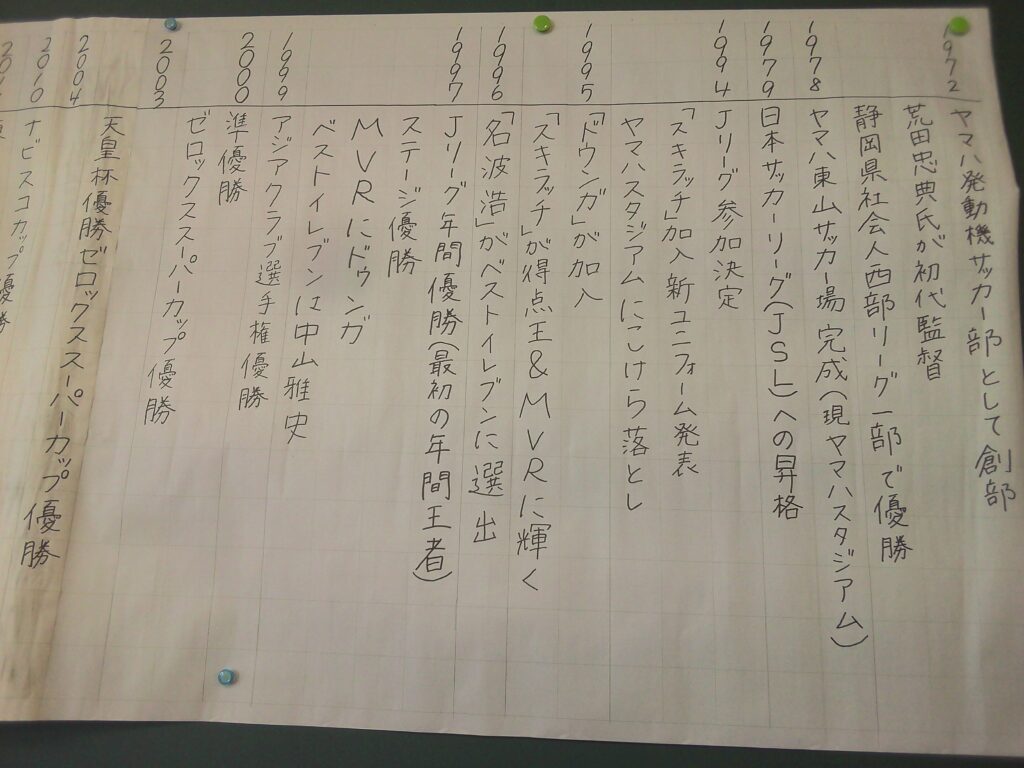 1972 ヤマハ発動機サッカー部として創部
荒田忠典氏が初代監督
静岡県社会人西部リーグ一部で優勝
1978 ヤマハ東山サッカー場完成(現ヤマハスタジアム)
1979 日本サッカーリーグ(JSL)への昇格
1994 Jリーグ参加決定
「スキラッチ」加入新ユニフォーム発表
ヤマハスタジアムにこけら落とし
1995 「ドゥンガ」が加入
「スキラッチ」が得点王&MVRに輝く
1996 「名波浩」がベストイレブンに選出
1997 Jリーグ年間優勝(最初の年間王者)
ステージ優勝
MVRにドゥンガ
ベストイレブンは中山雅史
1999 アジアクラブ選手権優勝
2000 準優勝
ゼロックススーパーカップ優勝
2003
2004 天皇杯優勝ゼロックススーパーカップ優勝
2010 ナビスコカップ優勝